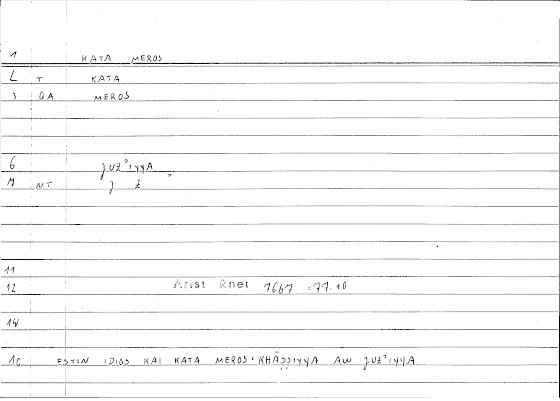 1 KATA MEROS
L T KATA
3 QA MEROS
6 ǧUZ'IYYA
M NT ǧ Z "
11
12 Arist Rhet 1667 = 77.10
14
ESTIN IDIOS KAI KATA MEROS : KHĀṢṢIYYA AW ǧUZ'IYYA